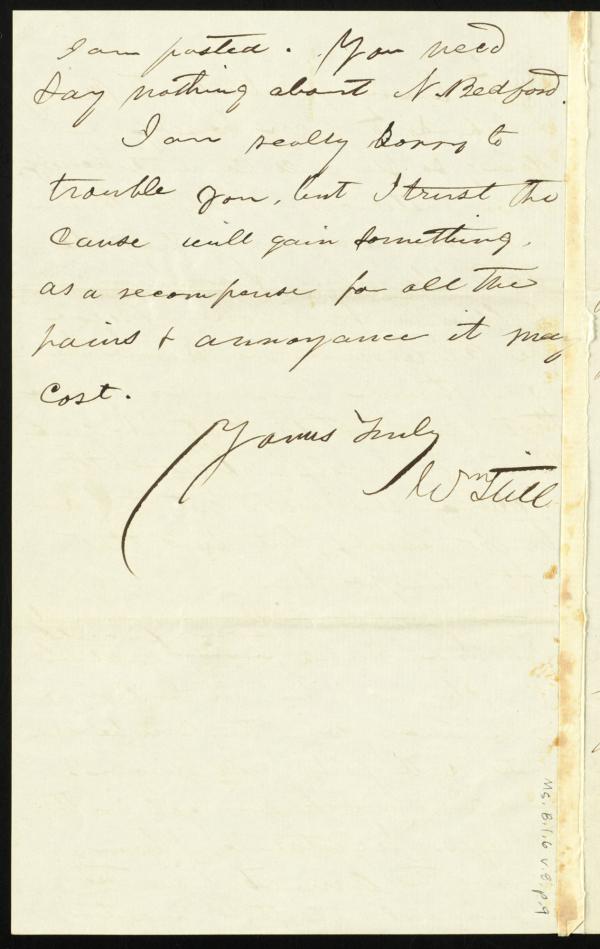 I am posted. You need
say nothing about N. Bedford.
I am really sorry to
trouble you, but I trust the
cause will gain something,
as a recompense for all the
pains & annoyance it may
cost.
Yours Truly
Wm Still
Ms. B.1.6 v.8. p.9